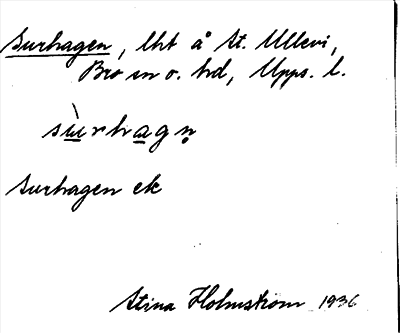 Surhagen, lht å St. Ullevi,
Bro sn o. hd, Upps. l.
sùrhagn̥
Surhagen ek
Stina Holmström 1936